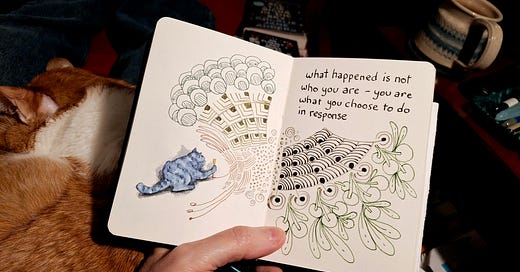 what happened is not
who you are - you are
what you choose to do
in response